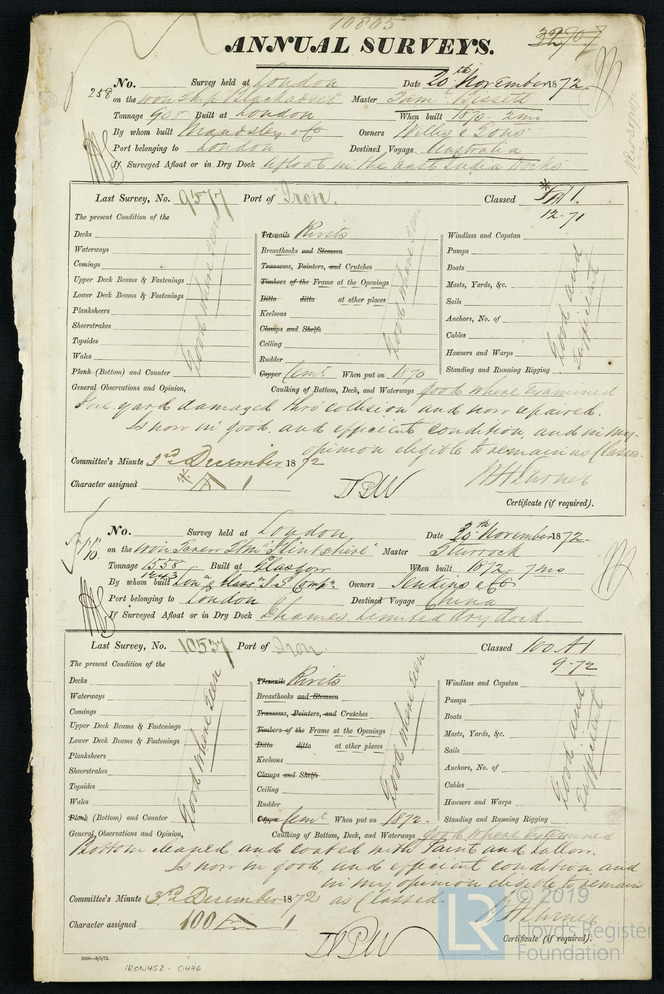 10805
32707
ANNUAL SURVEYS.
No. Survey held at London Date 20th November 1872.
258 on the iron Ship "Blackadder" Master Saml Bissett
Tonnage 908 Built at London When built 1870 2mo
By whom built Maudslay & Co Owners Willis & Sons
Port belonging to London Destined Voyage Australia
If Surveyed Afloat or in Dry Dock afloat in the East India Docks
Last Survey, No. 9577 Port of Iron. Classed A 1.
12.71
The present Condition of the
Decks
Waterways
Comings
Upper Deck Beams & Fastenings
Lower Deck Beams & Fastenings
Planksheers
Sheerstrakes
Topsides
Wales
Plank (Bottom) and Counter
Good where seen
Treenails Rivets
Breasthooks and Stemson
Transoms, Pointers, and Crutches
Timbers of the Frame at the Openings
Ditto ditto at other places
Keelsons
Clamps and Shelfs
Ceiling
Rudder
Copper Cemt When put on 1870
Good where seen
Windlass and Capstan
Pumps
Boats
Masts, Yards, &c.
Sails
Anchors, No. of
Cables
Hawsers and Warps
Standing and Running Rigging
Good and sufficient
General Observations and Opinion, Caulking of Bottom, Deck, and Waterways Good where examined
Fore yard damaged thro' collision and now repaired.
Is now in good and efficient condition and in my
opinion eligible to remain as Classed.
Committee's Minute 3rd December 1872
Character assigned A 1
Certificate (if required).
No. Survey held at London Date 20th November 1872
on the iron Screw Str "Flintshire" Master Sturrock
Tonnage 1558 Built at Glasgow When built 1872 7mo
1243
By whom built Lon & Glasw I.S. Compy Owners Jenkins & Co
Port belonging to London Destined Voyage China
If Surveyed Afloat or in Dry Dock Thames Limited dry dock.
Last Survey, No. 10537 Port of Iron. Classed 100 A 1
9.72
The present Condition of the
Decks
Waterways
Comings
Upper Deck Beams & Fastenings
Lower Deck Beams & Fastenings
Planksheers
Sheerstrakes
Topsides
Wales
Plank (Bottom) and Counter
Good where seen
Treenails Rivets
Breasthooks and Stemson
Transoms, Pointers, and Crutches
Timbers of the Frame at the Openings
Ditto ditto at other places
Keelsons
Clamps and Shelfs
Ceiling
Rudder
Copper Cemt When put on 1872.
Good where seen
Windlass and Capstan
Pumps
Boats
Masts, Yards, &c.
Sails
Anchors, No. of
Cables
Hawsers and Warps
Standing and Running Rigging
Good and sufficient
General Observations and Opinion, Caulking of Bottom, Deck, and Waterways Good where examined
Bottom cleaned and coated with Paint and tallow.
Is now in good and efficient condition and
in my opinion eligible to remain
as Classed.
Committee's Minute 3rd December 1872
Character assigned 100 A 1
Certificate (if required).
IRON452-0446
LR
© 2019
Lloyd's Register
Foundation